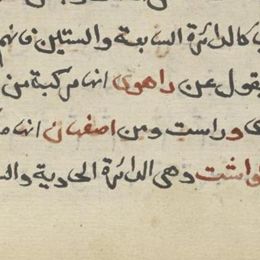 كالدائرة السابعة والستين فانهم
يقول عن راهوى انها مركبة من
وراست ومن اصفهان انها
نواشت وهى الدائرة الحادية